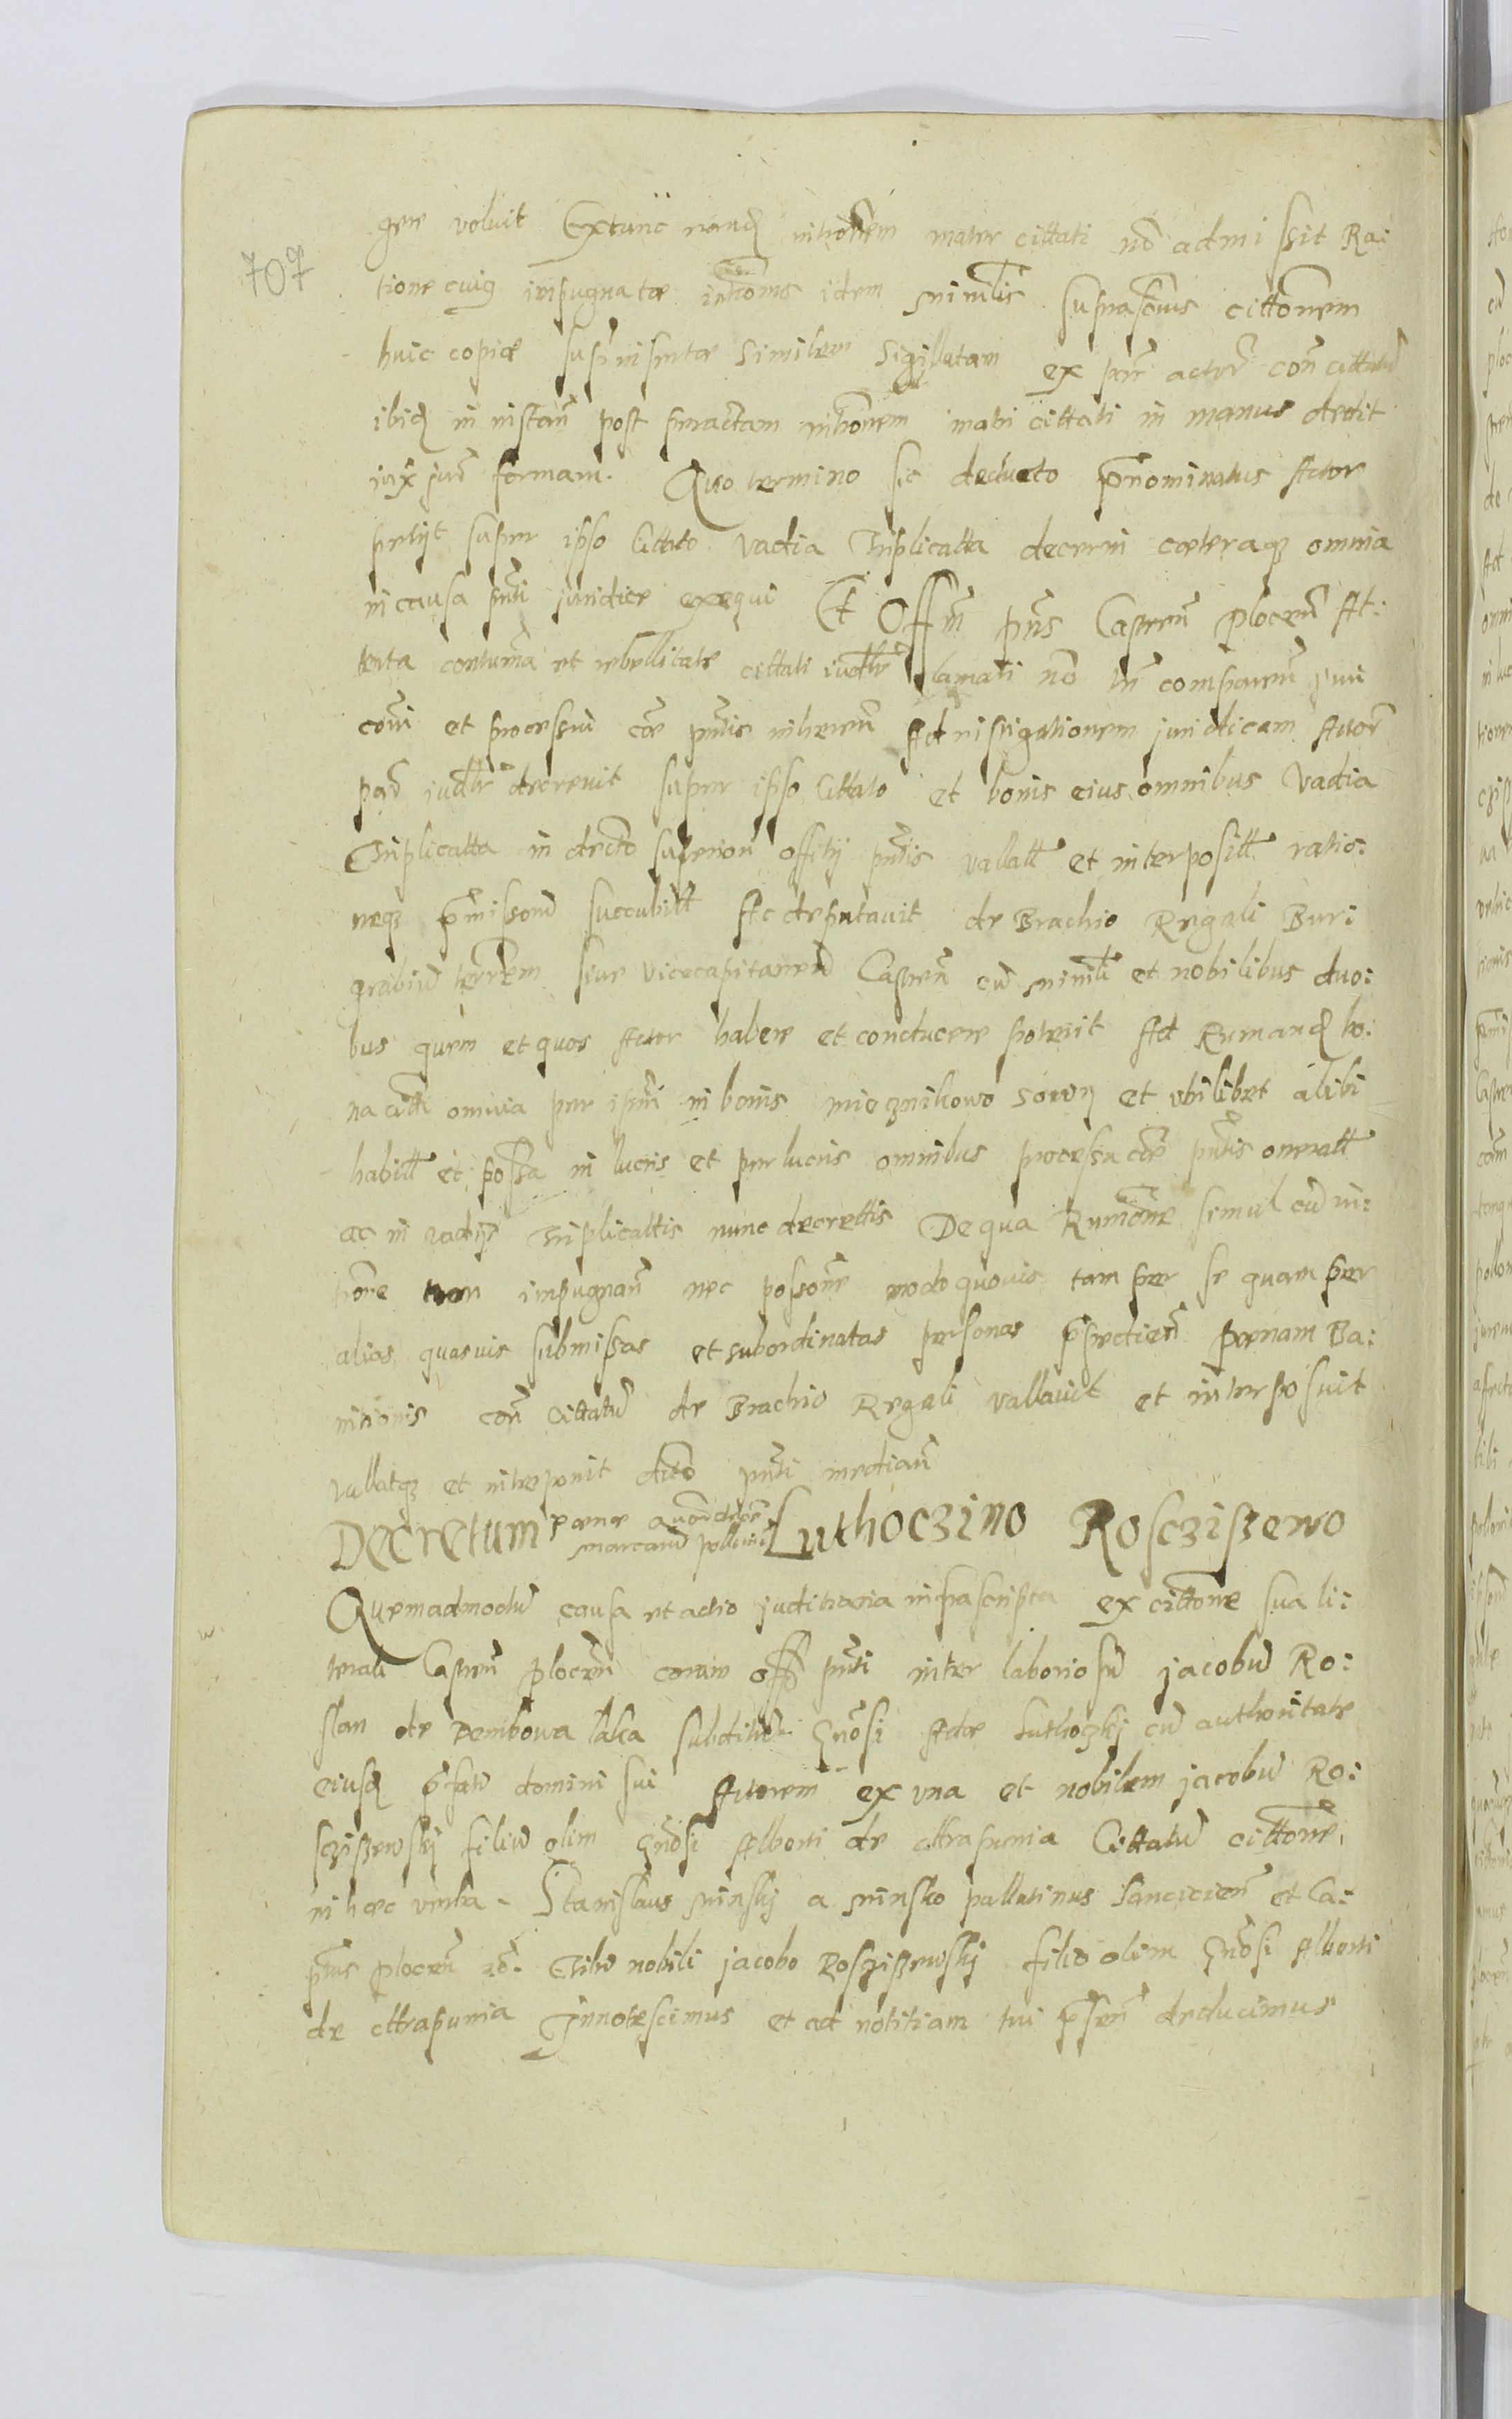 707
gere voluit Extunc eand intromem mater cittati no admissit Ra:
tione cuius impugnatae intromis idem minrlis suprascrius cittonem
huic copiae superi insertae similem sigillatam ex prte actor con cittatu
ibid in instan post peractam intromem matri cittati in manus dedit
iux jur formam. Quo termino sic deducto prnominatus Actor
petiit super ipso Cittato vadia Triplicatta decerni coeteraq omnia
in causa pnti juridice exequi Et Offm pns Castren Plocen At:
tenta contuma et rebellicate cittati iudlr clamati no tn comparen sui
comi et processui coe pntis inheren Ad instigationem juridicam Actor
pard iudlr decrevit super ipso Cittato et bonis eius omnibus Vadia
Triplicatta in decto superiori offitii pntis vallatt et interposist ratio:
neq prmissoru succubitt Ac deputavit de Brachio Regali Bur:
grabiu terrem sive Vicecapitaneu Castren cu minrli et nobilibus duo:
bus quem et quos Actor habere et conducere poterit Ad Rumand bo:
na citti omnia per ipm in bonis mieznikowo Sowy et ubilibet alibi
habitt et possa in lucris et perlucris omnibus processu coe pntis oneratt
ac in vadiis triplicattis nunc decrettis De qua Rumone simul cu in:
trone non impugnan nec possone modo quovis tam per se quam per
alias quasvis submissas et subordinatas personas prpedien poenam Ba:
nitionis con Cittatu de Brachio Regali vallavit et interposuit
vallatq et interponit dcto pnti median
Decretum poenae quatuordcem marcaru pollon Luthoczino Rosczissewo
Quemadmodu causa et actio juditiaria infrascripta ex cittone sua li:
terali Castren plocen coram offo pnti inter laboriosu jacobu Ro:
slan de Dembowa laka subditu Gnosi Adae Luthoczkj cu authoritate
eiusd prfati domini sui Actorem ex una et nobilem jacobu Ro:
sczissewskj filiu olim Gnosi Alberti de ottrapunia Cittatu cittone,
in haec verba. Stanislaus minskj a minsko pallatinus Lancicien et Ca:
pneus plocen ec. Tibi nobili jacobo Rosczissewskj filio olim Gnosi Alberti
de ottrapunia Innotescimus et ad notitiam tui prsen deducimus